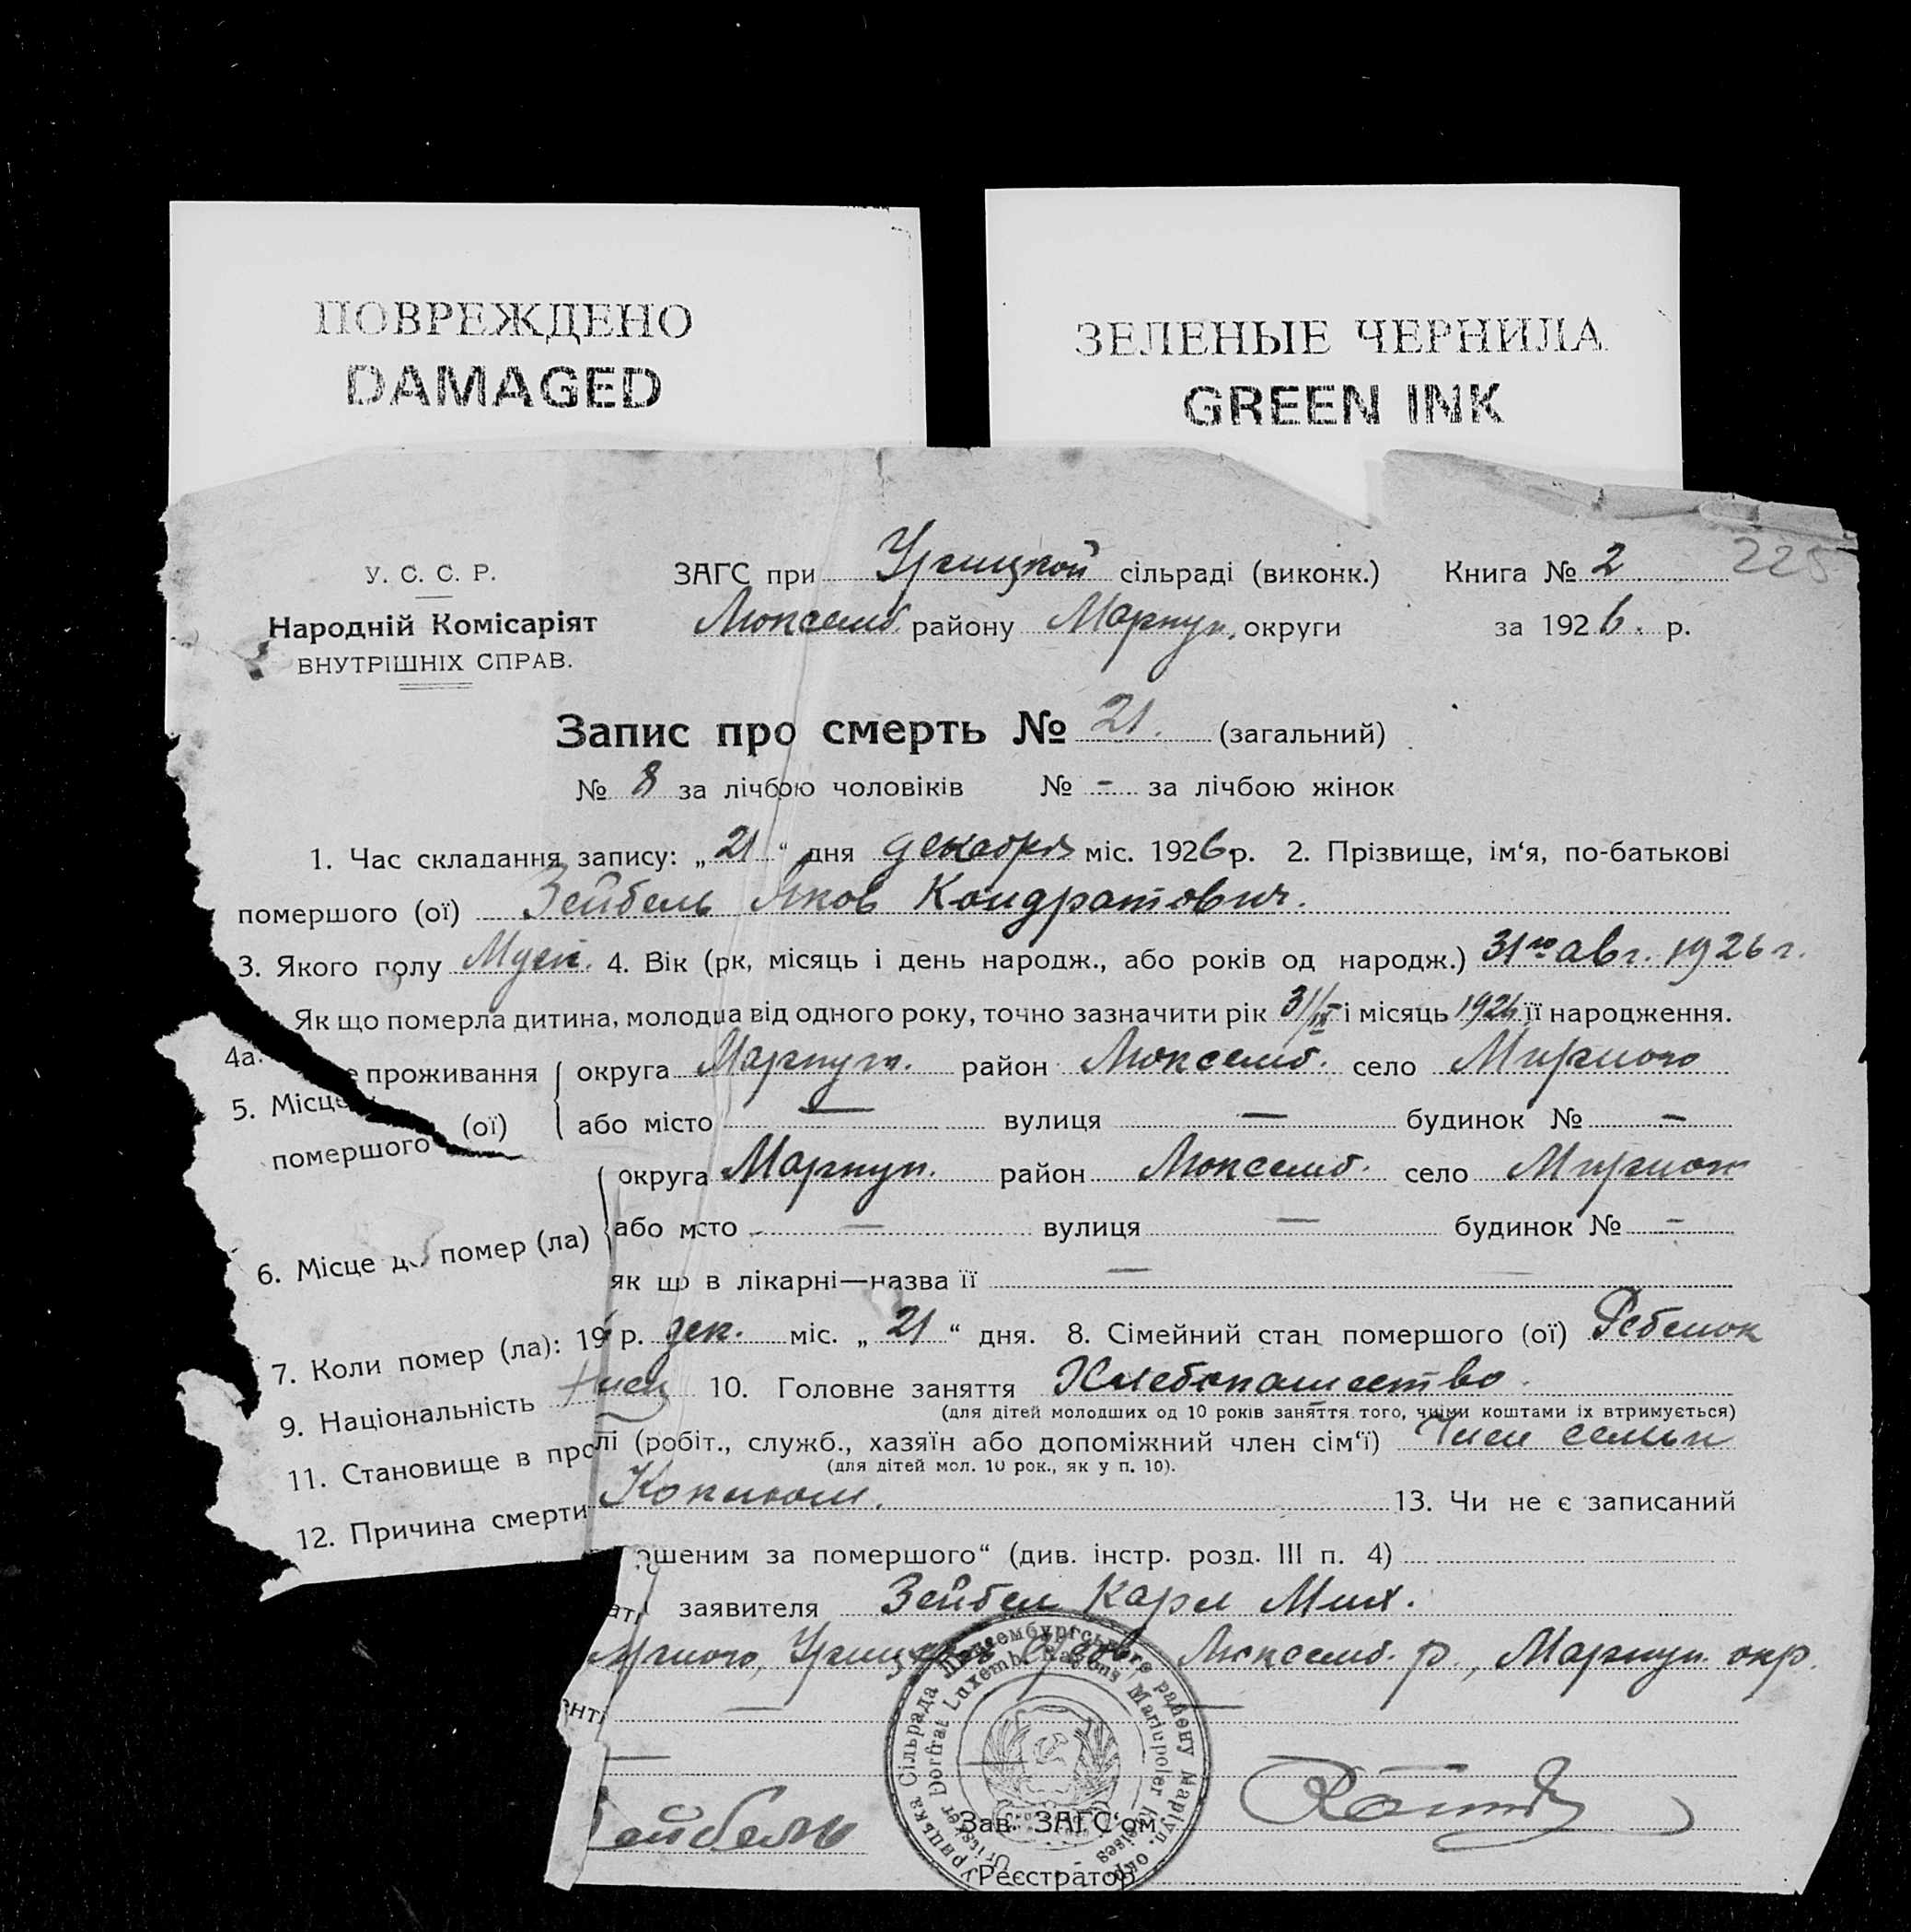 ПОВРЕЖДЕНО
DAMAGED
ЗЕЛЕНЫЕ ЧЕРНИЛА
GREEN INK
225
У. С. С. Р.
Народній Комісаріят
ВНУТРІШНІХ СПРАВ.
ЗАГС при Урицкой сільраді (виконк.) Книга № 2
Люксемб. району Мариуп. округи за 1926. р.
Запис про смерть № 21. (загальний)
№ 8 за лічбою чоловіків № - за лічбою жінок
1. Час складання запису: „21“ дня декабря міс. 1926 р. 2. Прізвище, ім‘я, по-батькові
помершого (ої) Зейбель Яков Кондратович.
3. Якого полу Муж. 4. Вік (рк, місяць і день народж., або років од народж.) 31го авг. 1926 г.
4а. Як що померла дитина, молодша від одного року, точно зазначити рік і місяць її народження.
5. Місце проживання помершого (ої) округа Мариуп. район Люксемб. село Мирного
або місто — вулиця — будинок № -
6. Місце де помер (ла) округа Мариуп. район Люксемб. село
або мсто — вулиця — будинок № -
як що в лікарні—назва її —
7. Коли помер (ла): 19 р. дек. міс. „21“ дня. 8. Сімейний стан помершого (ої) Ребенок
9. Національність 10. Головне заняття Хлебопашество.
(для дітей молодших од 10 років заняття того, чиїми коштами їх втримується)
11. Становище в про лі (робіт., служб., хазяїн або допоміжний член сім‘ї) Член семьи
(для дітей мол. 10 рок., як у п. 10).
12. Причина смерти Коклюш. 13. Чи не є записаний
ошеним за помершого“ (див. інстр. розд. III п. 4)
заявителя Зейбел Карл Мих.
ирного, Урицкой Люксемб. р., Мариуп. окр.
— —
—
Зейбель
Зав. ЗАГС‘ом
Реєстратор
Урицька Сільрада Люксембургського району Маріуп. окр.
Uritsker Dorfrat Luxemb. Rayons Mariupoler Kreises